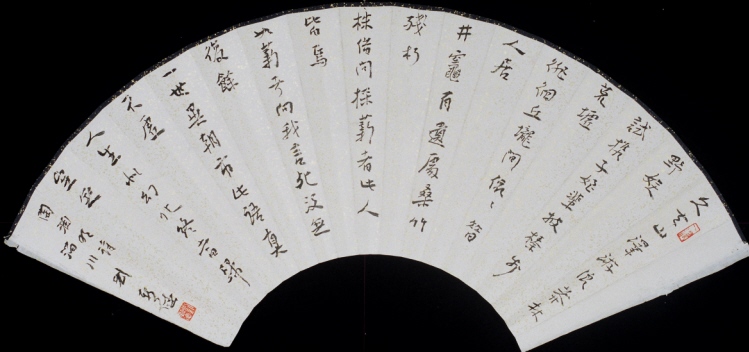 久去山澤游浪莽林
野娱
試攜子姪輩披榛步
荒墟
徘徊丘壠間依〻昔
人居
井竈有遺處桑竹
殘朽
株借問採薪者此人
皆焉
如薪者向我言死没無
復餘
一世異朝市此語真
不虚
人生似幻化終當歸
空無